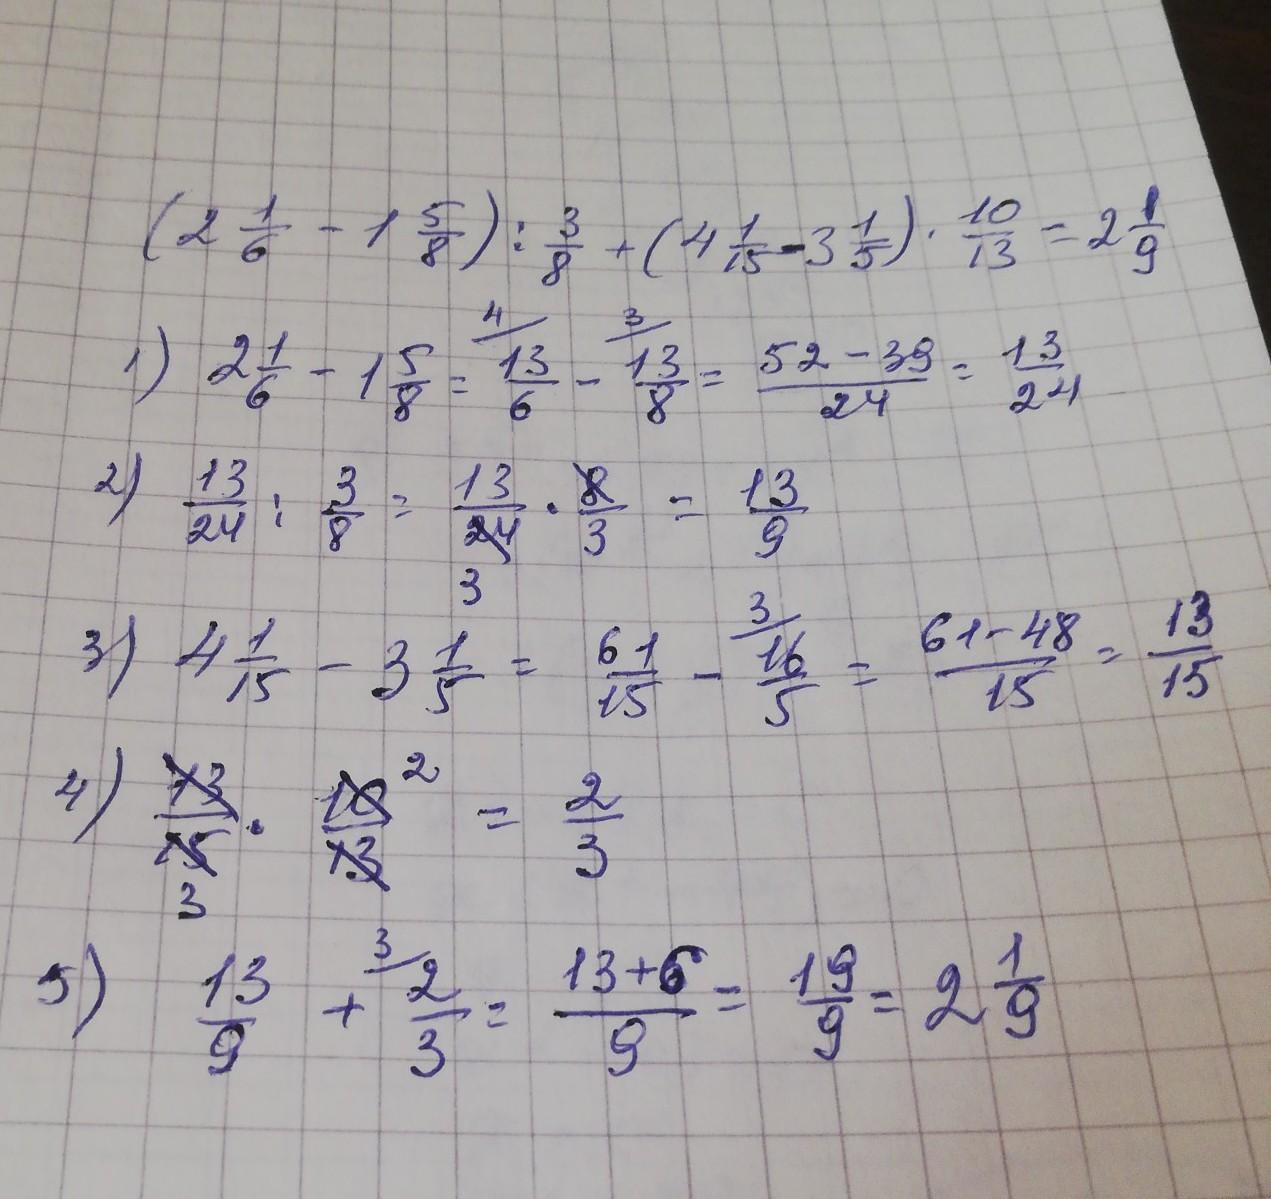 (2 1/6 - 1 5/8) : 3/8 + (4 1/15 - 3 1/5) · 10/13 = 2 1/9
1) 2 1/6 - 1 5/8 = 4/ 13/6 - 3/ 13/8 = 52-39/24 = 13/24
2) 13/24 : 3/8 = 13/24 3 · 8/3 = 13/9
3) 4 1/15 - 3 1/5 = 61/15 - 3/ 16/5 = 61-48/15 = 13/15
4) 13/15 3 · 10/13 2 = 2/3
5) 13/9 + 3/ 2/3 = 13+6/9 = 19/9 = 2 1/9